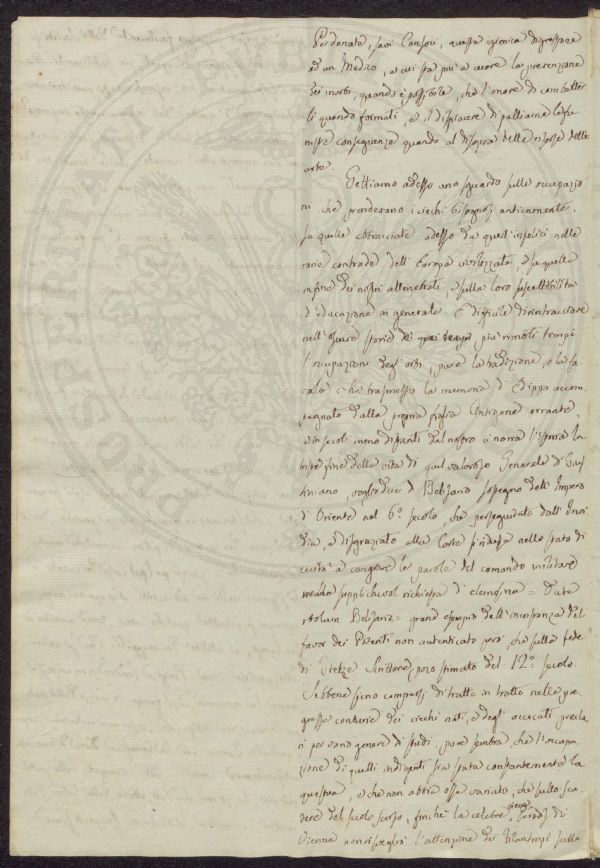 Perdonate, savj Consocj, questa igienica digressione
ad un Medico, a cui sta più a cuore la prevenzione
dei morbi, quando è possibile, che l'onore di combatter
li quando formati, e il dispiacere di palliarne le fu
neste conseguenze quando al disopra delle risorse della
arte.
Gettiamo adesso uno sguardo sulle occupazio
ni che prendevano i ciechi bisognosi anticamente,
su quelle abbracciate adesso da quest'infelici nelle
varie contrade dell'Europa civilizzata, e su quelle
infine dei nostri, e sulla loro suscettibilità
d'educazione in generale. È difficile di rintracciare
nell'oscure storie dei più rimoti tempi
l'occupazioni degl'orbi, pure la tradizione, o la fa
vola ci ha trasmesso la memoria d'Edippo accom
pagnato dalla propria figlia Antigone errante,
e in secoli meno distanti dal nostro ci narra l'istoria la
infelice fine della vita di quel valoroso Generale di Giu
stiniano, voglio dire di Belisario sostegno dell'Impero
d'Oriente nel 6.° secolo, che perseguitato dall'Invi
dia, e disgraziato alla Corte si ridusse nello stato di
cecità a cangiare le parole del comando militare
supplichevol richiesta d'elemosina = Date
obolum Belisario = grand esempio dell'incostanza del
favor dei Potenti non autenticato però, che sulla fede
di Tzetze Scrittore poco stimato del 12.° secolo.
Sebbene sieno comparsi di tratto in tratto nelle pre
gresse centurie dei ciechi nati, e degl'accecati precla
ri per vario genere di studj, pure sembra, che l'occupa
zione di quelli indigenti sia stata constantemente la
questua, e che non abbia essa variato, che sullo sca
dere del secolo scorso, finchè la celebre cieca Paradis di
Vienna non risvegliò l'attenzione dei Filantropi sulla